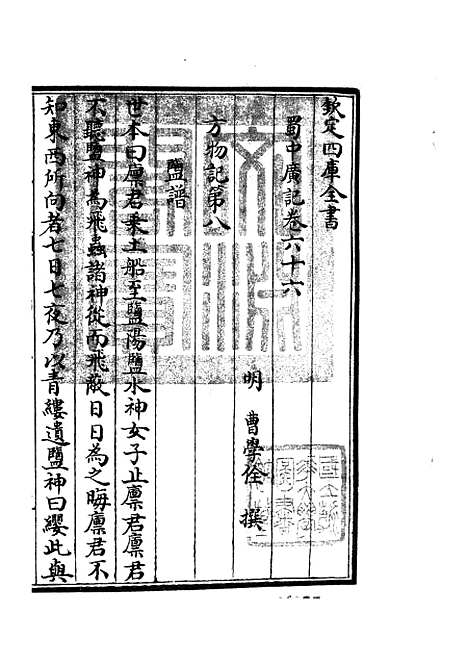 欽定四庫全書
蜀中廣記卷六十六
明 曹學佺 撰
方物記第八
鹽譜
世本曰廪君乘土船至鹽陽鹽水神女子止廪君廪君
不聽鹽神為飛蟲諸神從而飛蔽日日為之晦廪君不
知東西所向者七日七夜乃以青縷遺鹽神曰纓此與